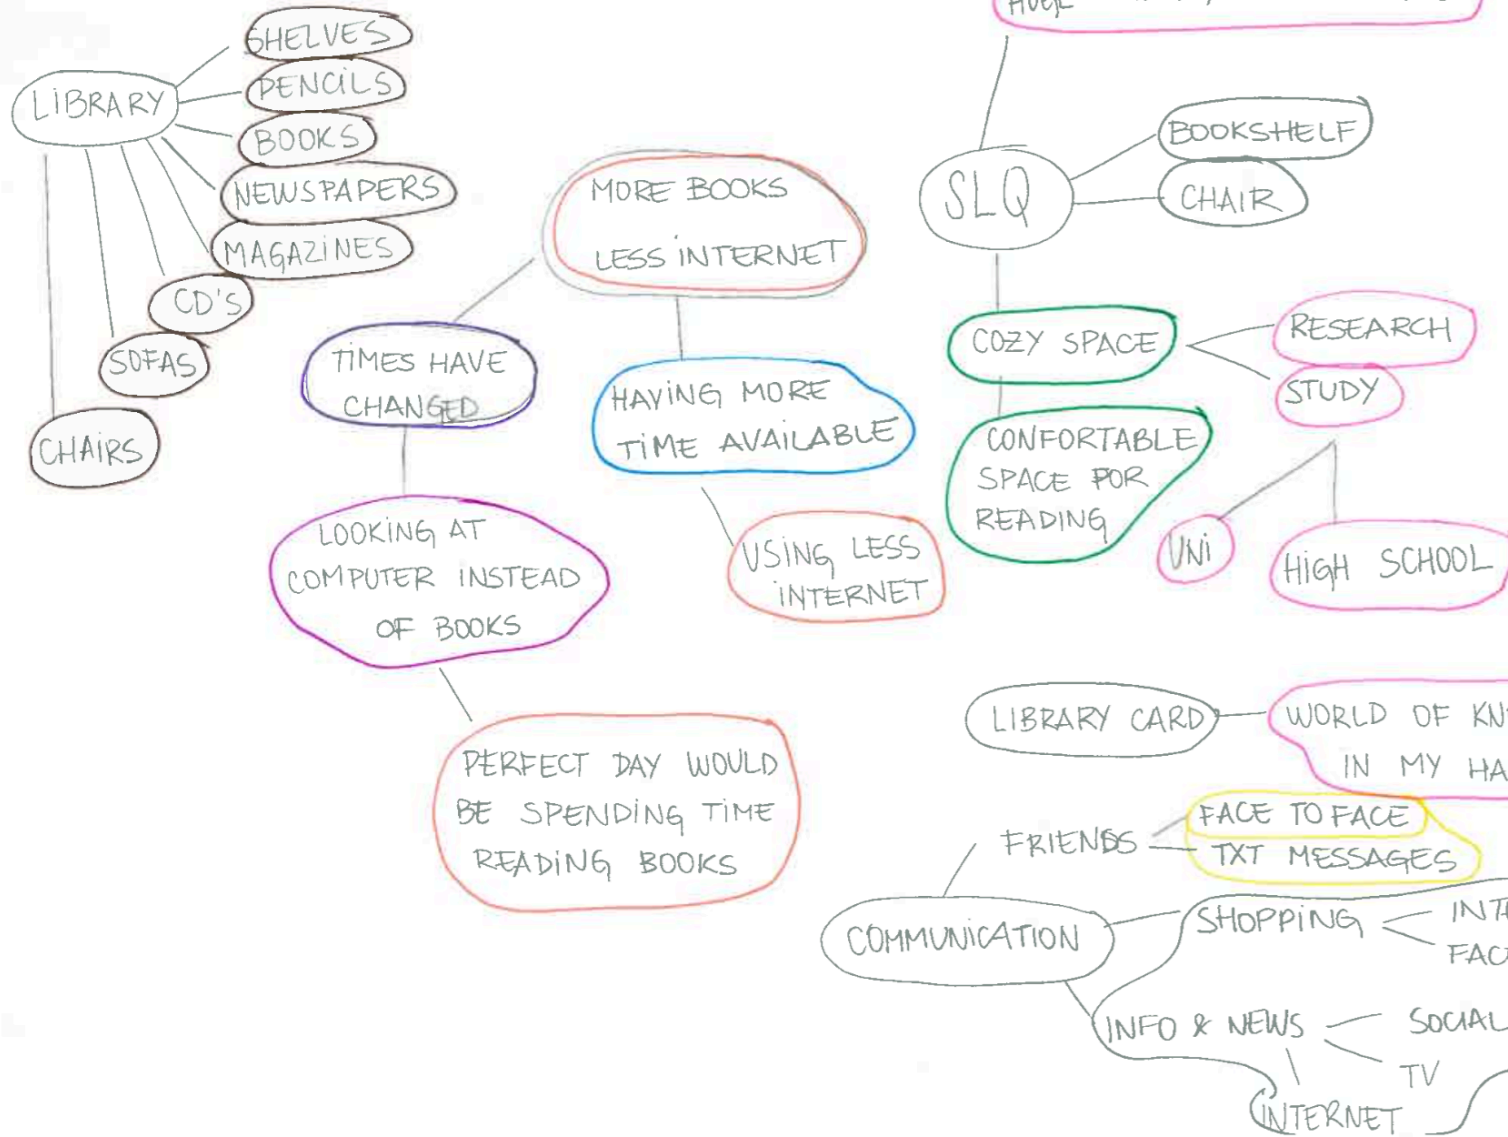 SHELVES
PENCILS
BOOKS
NEWSPAPERS
MAGAZINES
CD'S
SOFAS
CHAIRS
LIBRARY
MORE BOOKS
LESS INTERNET
TIMES HAVE
CHANGED
HAVING MORE
TIME AVAILABLE
LOOKING AT
COMPUTER INSTEAD
OF BOOKS
USING LESS
INTERNET
PERFECT DAY WOULD
BE SPENDING TIME
READING BOOKS
SLQ
BOOKSHELF
CHAIR
COZY SPACE
RESEARCH
STUDY
CONFORTABLE
SPACE FOR
READING
UNI
HIGH SCHOOL
LIBRARY CARD
WORLD OF
IN MY
FRIENDS
FACE TO FACE
TXT MESSAGES
COMMUNICATION
SHOPPING
INFO & NEWS
SOCIAL
TV
INTERNET